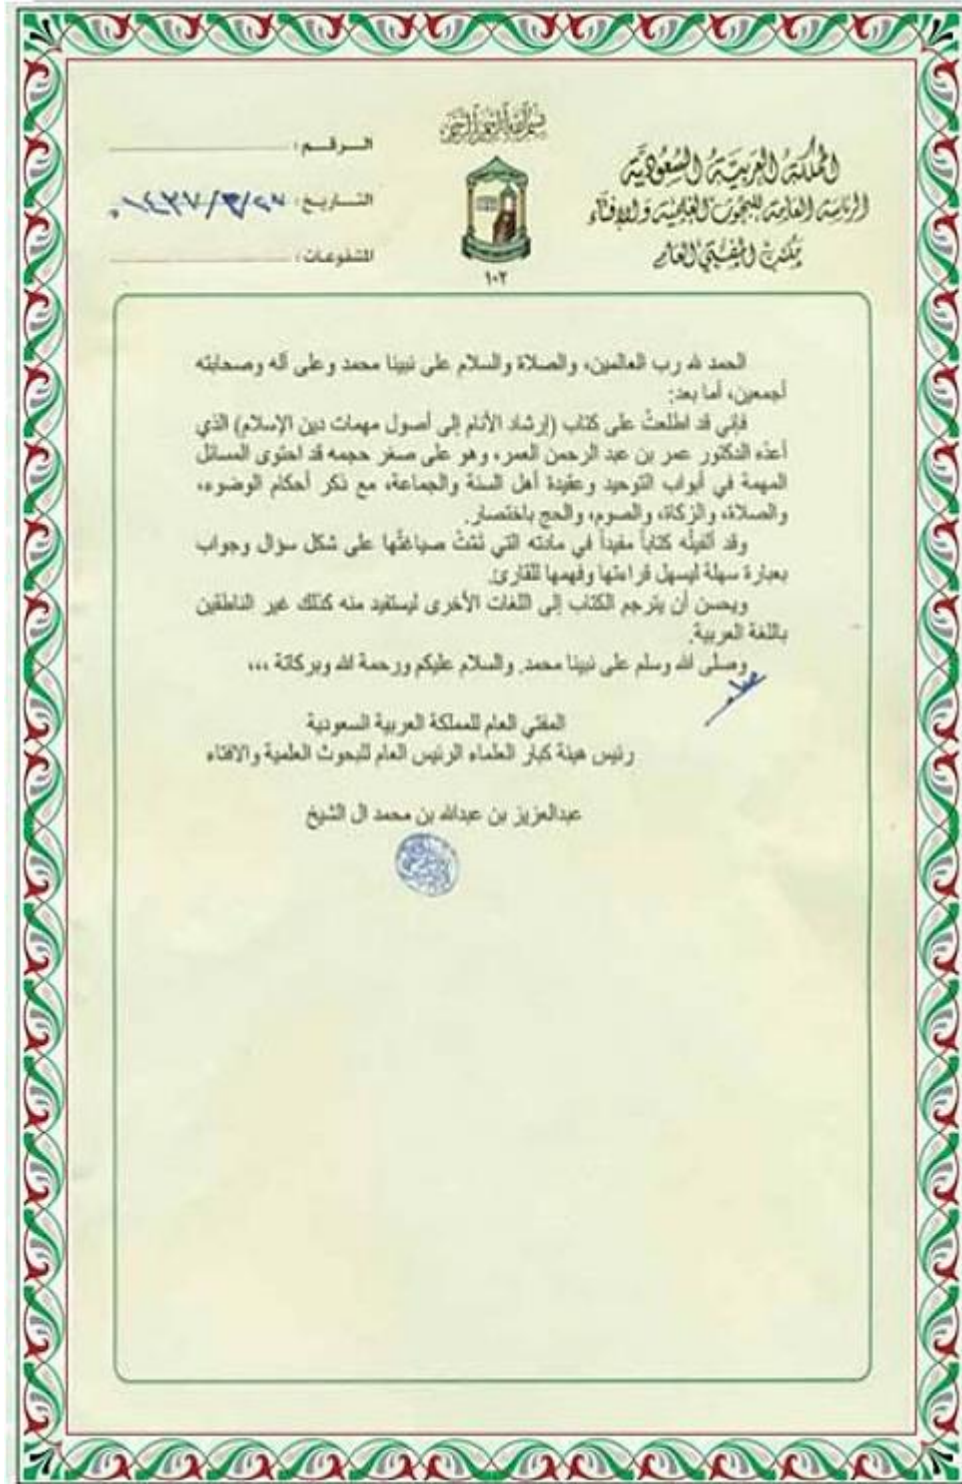 بسم الله الرحمن الرحيم
المملكة العربية السعودية
الرئاسة العامة للبحوث العلمية والإفتاء
مكتب المفتي العام
١٠٢
الـرقـم:
التـاريـخ:
المشفوعات:
الحمد لله رب العالمين، والصلاة والسلام على نبينا محمد وعلى آله وصحابته
أجمعين، أما بعد:
فإني قد اطلعتُ على كتاب (إرشاد الأنام إلى أصول مهمات دين الإسلام) الذي
أعدّه الدكتور عمر بن عبد الرحمن العمر، وهو على صغر حجمه قد احتوى المسائل
المهمة في أبواب التوحيد وعقيدة أهل السنة والجماعة، مع ذكر أحكام الوضوء،
والصلاة، والزكاة، والصوم، والحج باختصار.
وقد ألفيتُه كتاباً مفيداً في مادته التي تمّتْ صياغتُها على شكل سؤال وجواب
بعبارة سهلة ليسهل قراءتها وفهمها للقارئ.
ويحسن أن يترجم الكتاب إلى اللغات الأخرى ليستفيد منه كذلك غير الناطقين
باللغة العربية.
وصلى الله وسلم على نبينا محمد. والسلام عليكم ورحمة الله وبركاتة ،،،
المفتي العام للمملكة العربية السعودية
رئيس هيئة كبار العلماء الرئيس العام للبحوث العلمية والافتاء
عبدالعزيز بن عبدالله بن محمد ال الشيخ